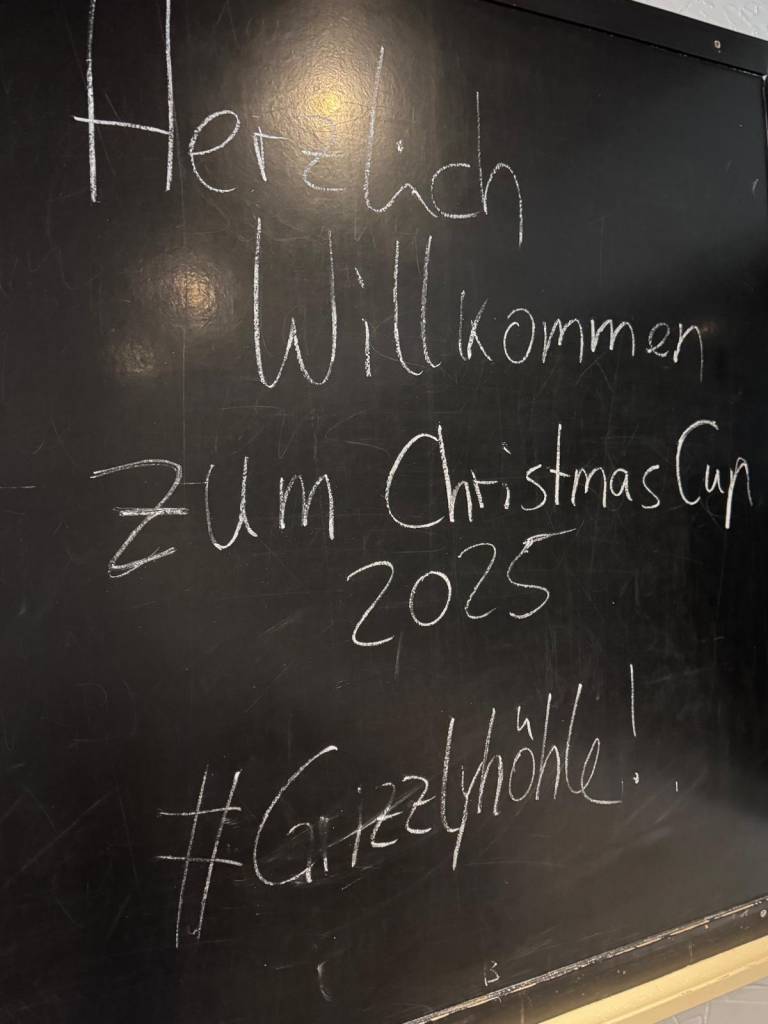 Herzlich
Willkommen
zum Christmas Cup
2025
#Grizzlyhöhle!